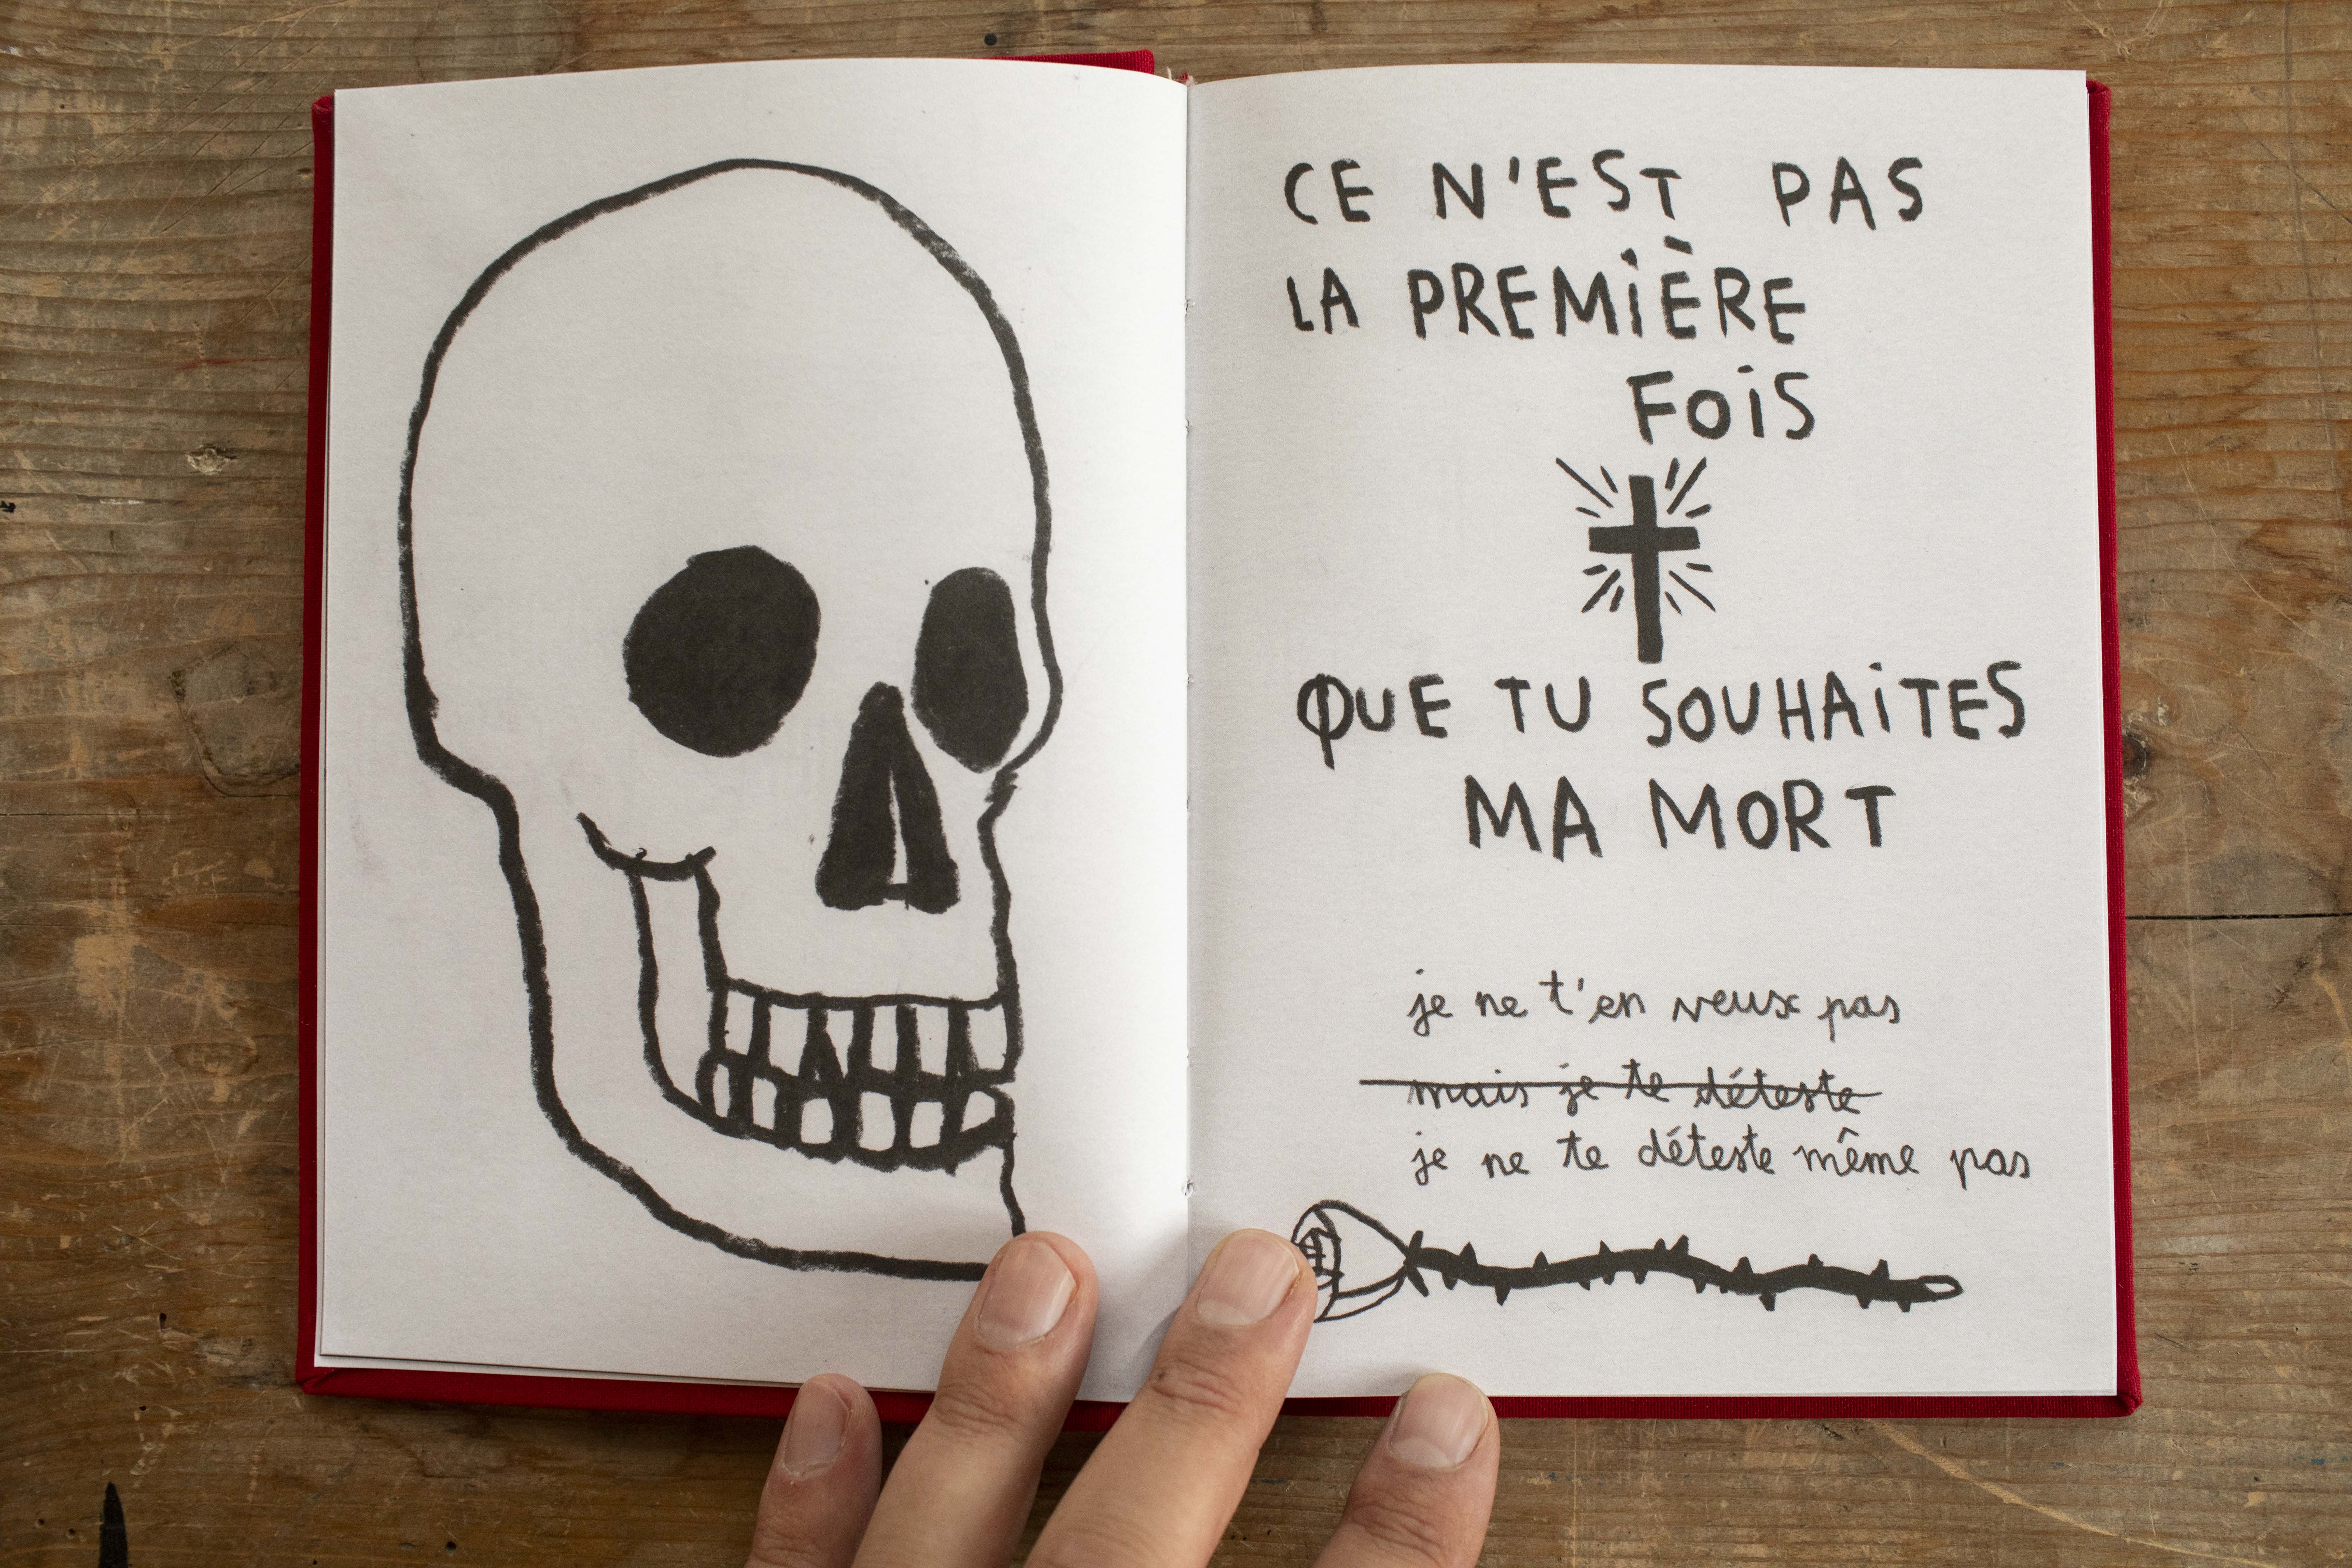 CE N'EST PAS
LA PREMIÈRE
FOIS
QUE TU SOUHAITES
MA MORT
je ne t'en veux pas
mais je te déteste
je ne te déteste même pas